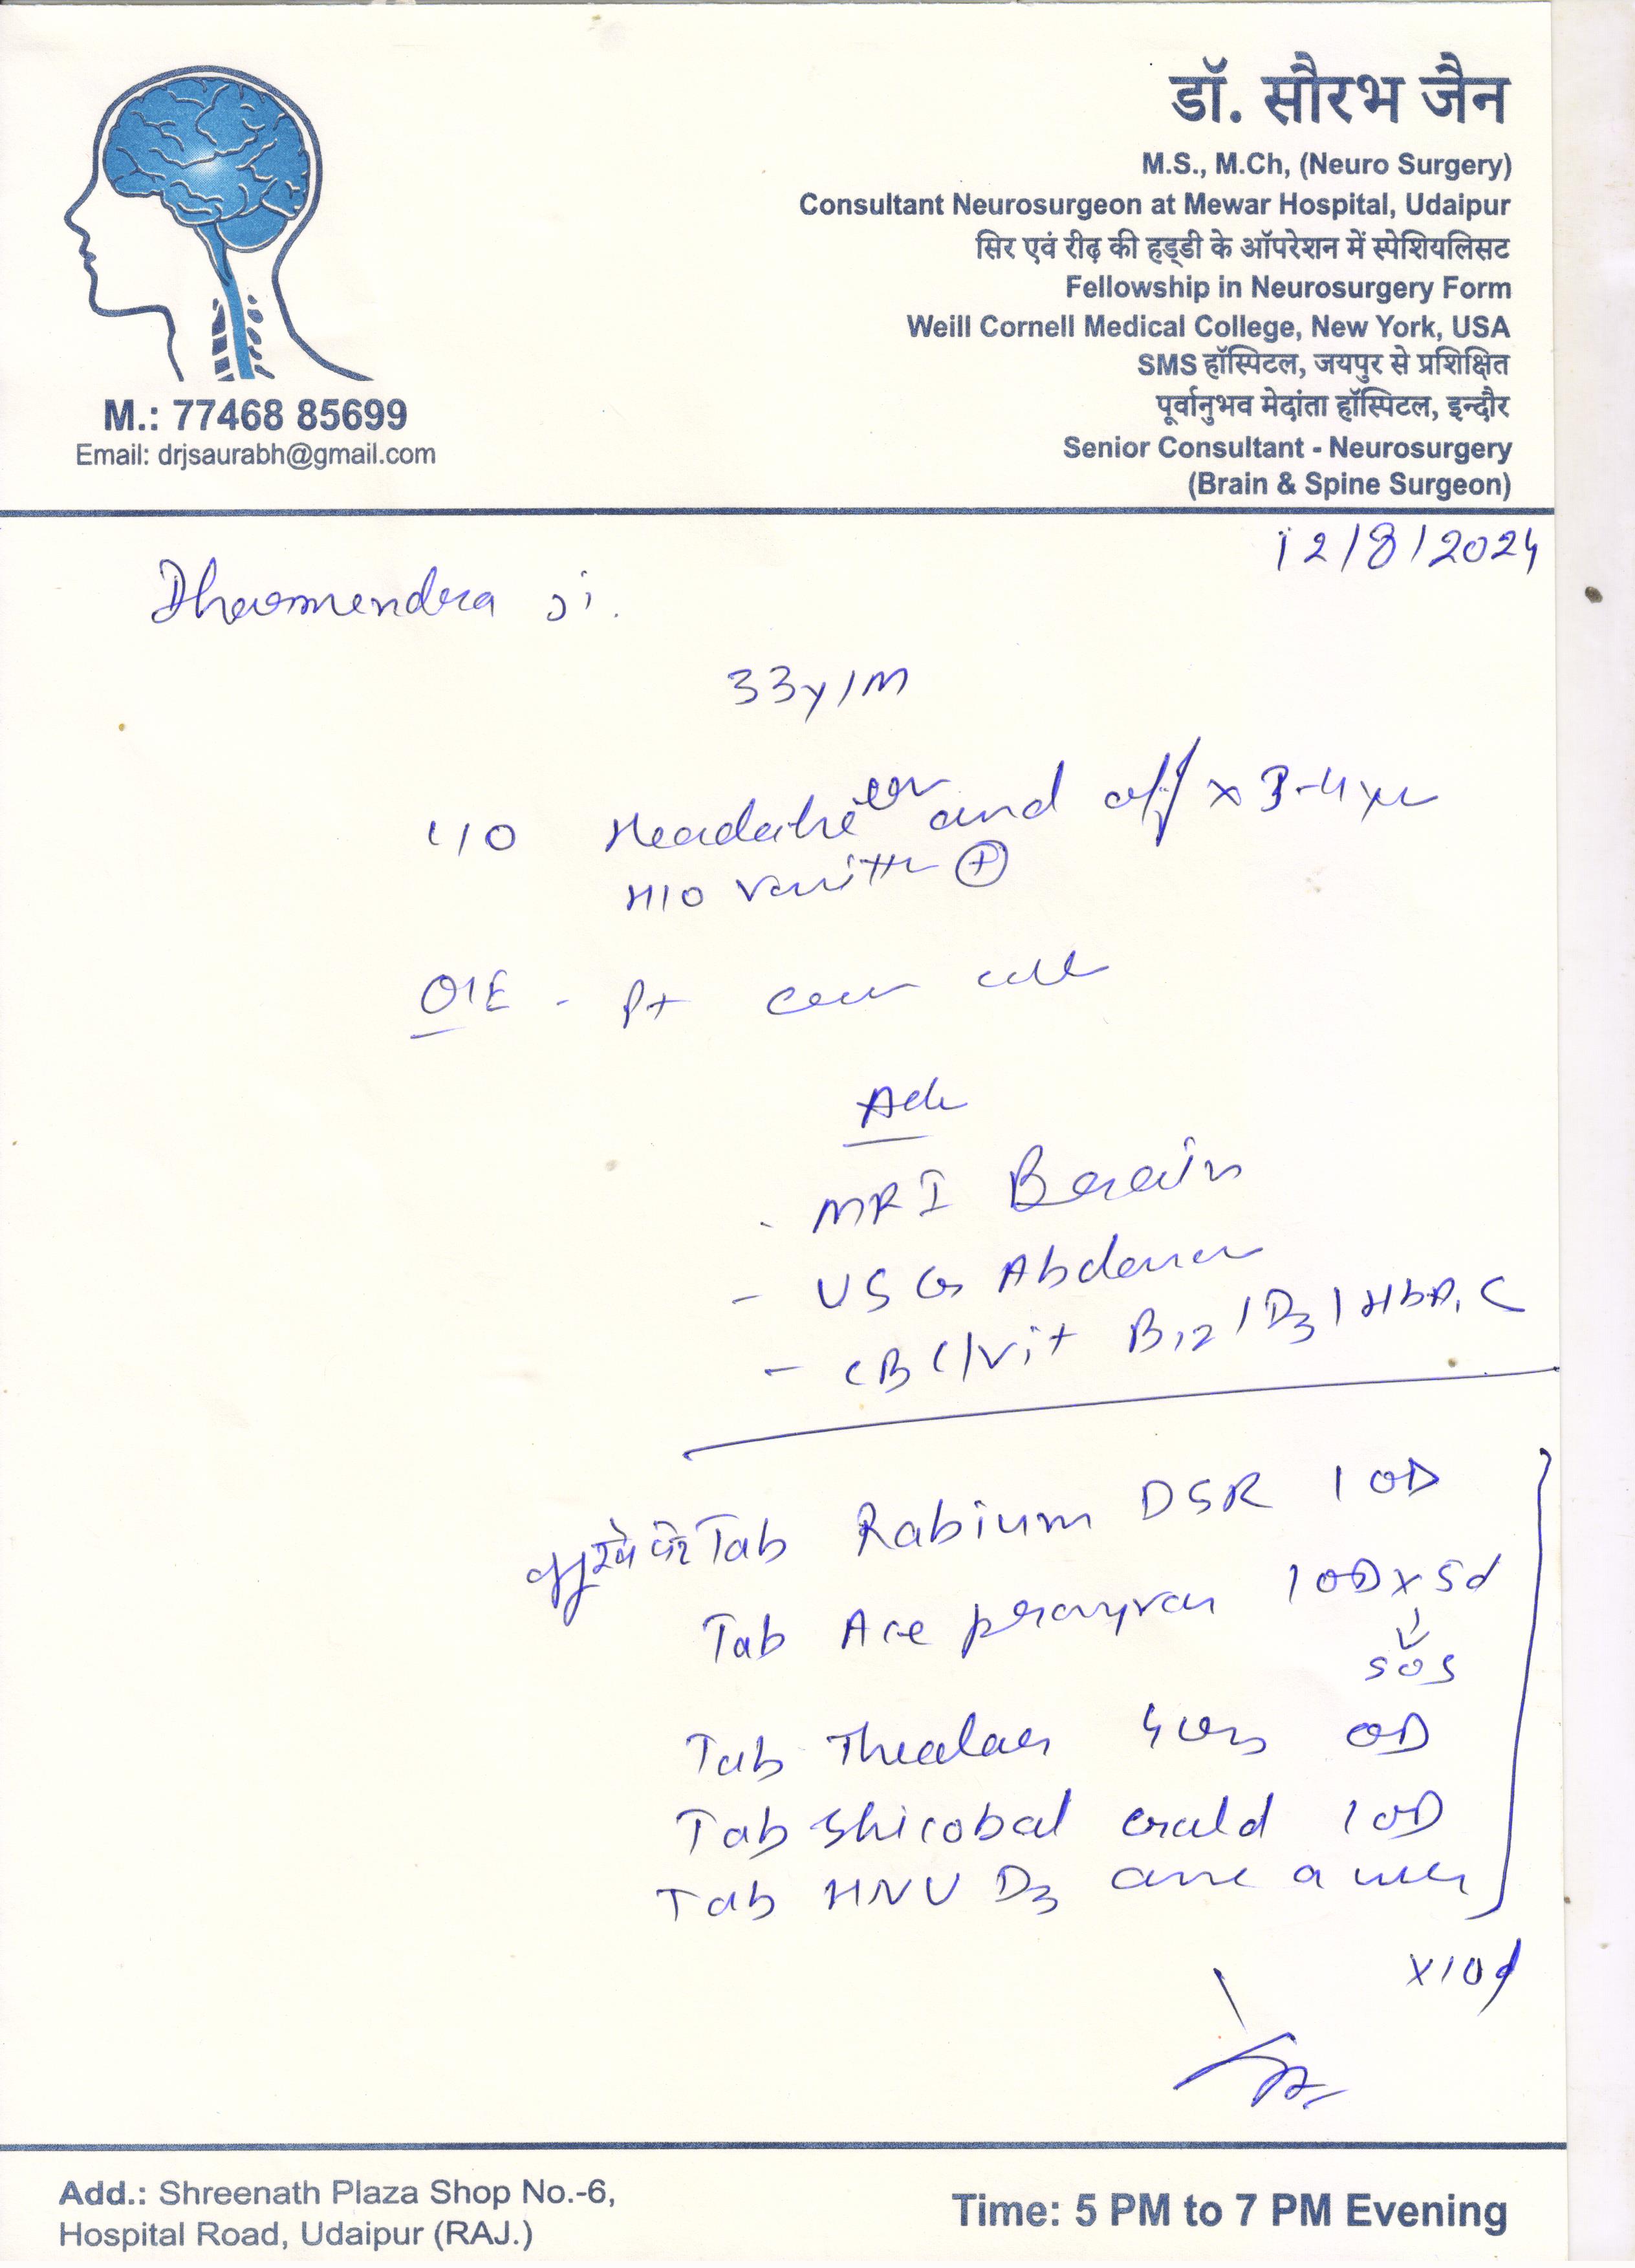 डॉ. सौरभ जैन
M.S., M.Ch, (Neuro Surgery)
Consultant Neurosurgeon at Mewar Hospital, Udaipur
सिर एवं रीढ़ की हड्डी के ऑपरेशन में स्पेशियलिसट
Fellowship in Neurosurgery Form
Weill Cornell Medical College, New York, USA
SMS हॉस्पिटल, जयपुर से प्रशिक्षित
पूर्वानुभव मेदांता हॉस्पिटल, इन्दौर
Senior Consultant - Neurosurgery
(Brain & Spine Surgeon)
M.: 77468 85699
Email: drjsaurabh@gmail.com
12/8/2024
Dharmendra ji.
33y/M
C/O Headache on and off x 3-4 yr
H/O +
O/E - Pt
Adv
- MRI Brain
- USG Abdomen
- CBC/Vit B12/D3/HbA1C
Tab Rabium DSR 1 OD
Tab Ace 1 OD x 5d
↓
SOS
Tab OD
Tab 1 OD
Tab D3 once a week
x10d
Add.: Shreenath Plaza Shop No.-6,
Hospital Road, Udaipur (RAJ.)
Time: 5 PM to 7 PM Evening